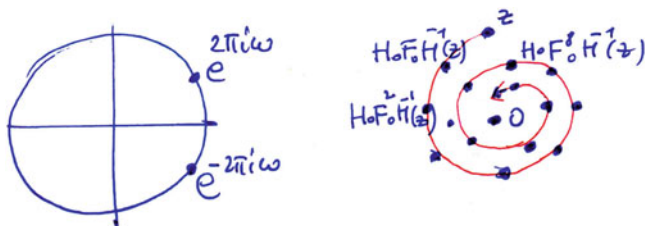 e^{2πiω}
e^{-2πiω}
z
H∘F∘H^{-1}(z)
H∘F^8∘H^{-1}(z)
H∘F^2∘H^{-1}(z)
0